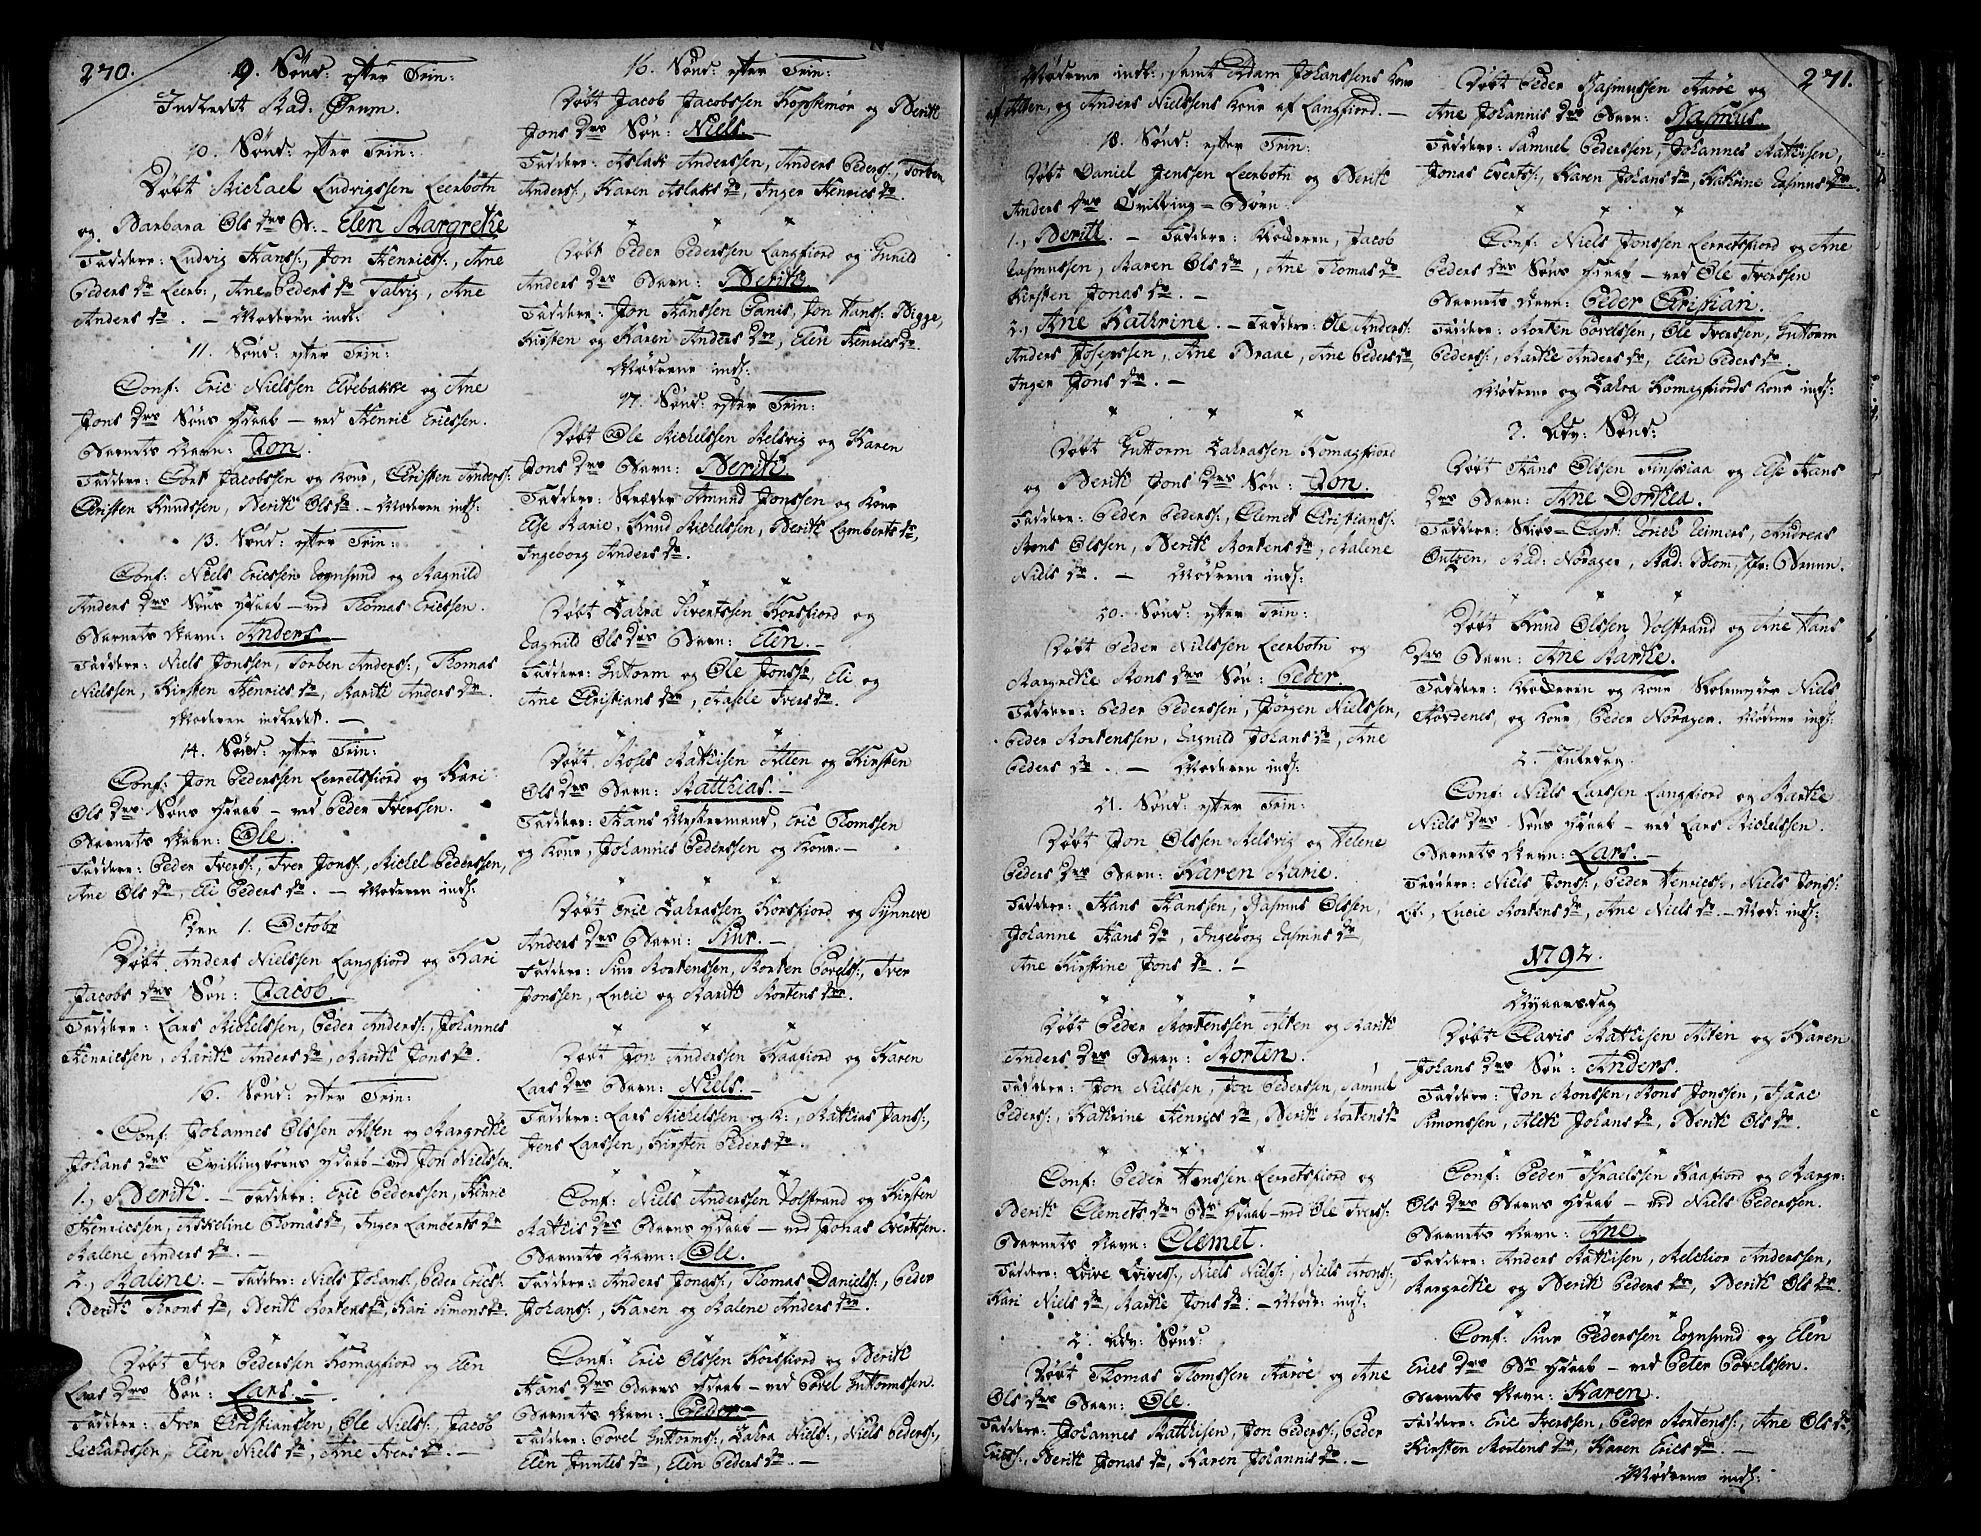 270.
9. Sønd: efter Trin:
Indledet Mad: Ørum.
10. Sønd: efter Trin:
Døbt Michael Ludvigssen Leerbotn
og Barbara Ols Dtrs B: Elen Margrethe
Faddere: Ludvig Hanss:, Jon Henricss:, Ane
Peders Dr Leerb:, Ane Peders Dr Talvig, Ane
Anders Dr. - Moderen indl:
11. Sønd: efter Trin:
Conf: Eric Nielssen Elvebakke og Ane
Jons Dtrs Søns Hdaab - ved Henric Ericssen.
Barnets Navn: Jon.
Faddere: Jacobssen og Kone, Christen Anderss:
Christen Knudssen, Berith Ols Dr. - Moderen indl:
13. Sønd: efter Trin:
Conf: Niels Ericssen Rognsund og Magnild
Anders Dtrs Søns Hdaab - ved Thomas Ericssen.
Barnets Navn: Anders
Faddere: Niels Jonssen, Torben Anderss:, Thomas
Nielssen, Kirsten Henrics Dr, Marith Anders Dr.
Moderen indledet. -
14. Sønd: efter Trin:
Conf: Jon Pederssen Lerretsfiord og Kari
Ols Dtrs Søns Hdaab - ved Peder Iverssen.
Barnets Navn: Ole
Faddere: Peder Iverss:, Iver Jonss:, Michel Pederssen,
Ane Ols Dr, Eli Peders Dr. - Moderen indl:
Den 1. Octobr
Døbt Anders Nielssen Langfiord og Kari
Jacobs Dtrs Søn: Jacob.
Faddere: Lars Michelssen, Peder Anderss:, Johannes
Henricssen, Marith Anders Dr, Marith Jons Dr.
16. Sønd: efter Trin:
Conf: Johannes Olssen Alten og Margrethe
Johans Dtrs Tvillingbørns Hdaab - ved Jon Nielssen.
1., Berith. - Faddere: Eric Pederssen, Henric
Henricssen, Thomas Dr, Inger Lamberts Dr
Malene Anders Dr. -
2., Malene. - Fadder: Niels Johanss:, Peder Ericss:
Berith Arons Dr, Berith Mortens Dr, Kari Simons Dr.
Døbt Iver Pederssen Komagfiord og Elen
Lars Dtrs Søn: Lars.
Faddere: Iver Christianssen, Ole Nielss:, Jacob
Richardssen, Elen Niels Dr, Ane Ivers Dr. -
16. Sønd: efter Trin:
Døbt Jacob Jacobssen Kopskmøe og Berith
Jons Dtrs Søn: Niels. -
Faddere: Aslak Anderssen, Anders Pederss:, Torben
Anderss:, Karen Aslaks Dr, Inger Henrics Dr.
x x x
Døbt Peder Pederssen Langfiord og Gunild
Anders Dtrs Barn: Berith
Faddere: Jon Hanssen Jon Hanss: Bigge,
Kirsten og Karen Anders Dr, Elen Henrics Dr.
Mødrene indl:
17. Sønd: efter Trin:
Døbt Ole Michelssen Melsvig og Karen
Jons Dtrs Barn: Berith.
Faddere: Skræder Amund Jonssen og Kone
Else Marie, Knud Michelssen, Berith Lamberts Dr,
Ingeborg Anders Dr.
x x x
Døbt Zakra Sivertssen Korsfiord og
Ragnild Ols Dtrs Barn: Elen. -
Faddere: Guttorm og Ole Jonss:, Eli og
Ane Christians Dr, Ivers Dr.
x x x
Døbt Moses Mathisen Alten og Kirsten
Ols Dtrs Barn: Matthias. -
Faddere: Hans Westermand, Eric Thomssen
og Kone, Johannes Pederssen og Kone. -
x x x
Døbt Eric Zakrassen Korsfiord og Synneve
Anders Dtrs Barn: Siur. -
Faddere: Siur Mortenssen, Morten Povelss:, Iver
Jonssen, Lucie og Marith Mortens Dtre.
x x x
Døbt Jon Anderssen Kaafiord og Karen
Lars Dtrs Barn: Niels. -
Faddere: Lars Michelssen og K:, Mathias Janss:,
Jens Larssen, Kirsten Peders Dr.
x x x
Conf: Niels Anderssen Volstrand og Kirsten
Mathis Dtrs Barns Hdaab - ved Jonas Evertssen.
Barnets Navn: Ole.
Faddere: Anders Jonass:, Thomas Danielss:, Peder
Johanss:, Karen og Malene Anders Dtre.
x x x
Conf: Eric Olssen Korsfiord og Berith
Hans Dtrs Barns Hdaab - ved Povel Guttormssen.
Barnets Navn: Peder. -
Faddere: Povel Guttormss:, Zakra Nielss:, Niels Pederss:,
Elen Dr, Elen Peders Dr. -
271.
Mødrene indl:, samt Adam Johanssens Kone
af Alten, og Anders Nielssens Kone af Langfiord. -
18. Sønd: efter Trin:
Døbt Daniel Jenssen Leerbotn og Berith
Anders Dtrs Tvilling-Børn:
1., Berith. - Faddere: Moderen, Jacob
Rasmussen, Maren Ols Dr, Ane Thomas Dr
Kirsten Jonas Dr. -
2., Ane Kathrine. - Faddere: Ole Anderss:
Anders Josepssen, Ane Braae, Ane Peders Dr,
Inger Jons Dr. -
x x x
Døbt Guttorm Zakrassen Komagfiord
og Berith Jons Dtrs Søn: Jon.
Faddere: Peder Pederss:, Clemet Christianss:
Mons Olssen, Berith Mortens Dr, Malene
Niels Dr. - Mødrene indl:
20. Sønd: efter Trin:
Døbt Peder Nielssen Leerbotn og
Margrethe Mons Dtrs Søn: Peder.
Faddere: Peder Pederssen, Jørgen Nielssen,
Peder Mortenssen, Ragnild Johans Dr, Ane
Peders Dr. - Moderen indl:
21. Sønd: efter Trin:
Døbt Jon Olssen Melsvig og Helene
Peders Dtrs Barn: Karen Marie.
Faddere: Hans Hanssen, Rasmus Olssen,
Johanne Hans Dr, Ingeborg Rasmus Dr,
Ane Kirstine Jons Dr. -
x x x
Døbt Peder Mortenssen Alten og Marith
Anders Dtrs Barn: Morten.
Faddere: Jon Nielssen, Jon Pederssen, Samuel
Pederss:, Kathrine Henrics Dr, Berith Mortens Dr
x x x
Conf: Peder Hanssen Lerretsfiord og
Berith Clemets Dr Bs Hdaab - ved Ole Iverss:
Barnets Navn: Clemet.
Faddere: Niels Nielss:, Niels Aronss:,
Kari Niels Dr, Marthe Jons Dr. - Mødr: indl:
2. Adv: Sønd:
Døbt Thomas Thomssen Aarøe og Ane
Ols Dtrs Barn: Ole.
Faddere: Johannes Matthisen, Jon Pederss:, Peder
Ericss:, Berith Jonas Dr, Karen Johannis Dr. -
Døbt Peder Rasmussen Aarøe og
Ane Johannis Dtrs Barn: Rasmus.
Faddere: Samuel Pederssen, Johannes Mathisen,
Jonas Evertss:, Karen Johans Dr, Kathrine Rasmus Dr.
x x x
Conf: Niels Jonssen Lerretsfiord og Ane
Peders Dtrs Søns Hdaab - ved Ole Iverssen
Barnets Navn: Peder Christian.
Faddere: Morten Povelssen, Ole Iverssen, Guttorm
Pederss:, Marthe Anders Dr, Elen Peders Dr.
Mødrene og Zakra Komagfiords Kone indl:
3. Adv: Sønd:
Døbt Hans Olssen og Else Hans
Dtrs Barn: Ane Dorthea.
Faddere: Skibs-Capt: Reimers, Andreas
Mad: Norager, Mad: Blom, Jfr: Brunn.
x x x
Døbt Knud Olssen Volstrand og Ane Hans
Dtrs Barn: Ane Marthe.
Faddere: Moderen og Kone, Skolemester Niels
og Kone, Peder Norager. Mødrene indl:
2. Juledag.
Conf: Niels Larssen Langfiord og Marthe
Niels Dtrs Søns Hdaab - ved Lars Michelssen.
Barnets Navn: Lars. -
Faddere: Niels Jonss:, Peder Henricss:, Niels Jonss:
Lf:, Lucie Mortens Dr, Ane Niels Dr. - Mod: indl:
1794.
Nyaarsdag
Døbt Clavis Mathisen Alten og Karen
Johans Dtrs Søn: Anders.
Faddere: Jon Monssen, Mons Jonssen, Isaac
Simonssen, Aleth Johans Dr, Berith Ols Dr.
x x x
Conf: Peder Israelssen Kaafiord og Margr:
Ols Dtrs Barns Hdaab - ved Niels Pederssen.
Barnets Navn: Ane.
Faddere: Anders Mathisen, Melchior Anderssen,
Margrethe og Berith Peders Dtre, Berith Ols Dr.
x x x
Conf: Siur Pederssen Rognsund og Elen
Erics Dtrs Bs Hdaab - ved Peter Povelssen.
Barnets Navn: Karen.
Faddere: Eric Iverssen, Peder Mortenss:, Ane Ols Dr,
Kirsten Mortens Dr, Karen Erics Dr. -
Mødrene indl: